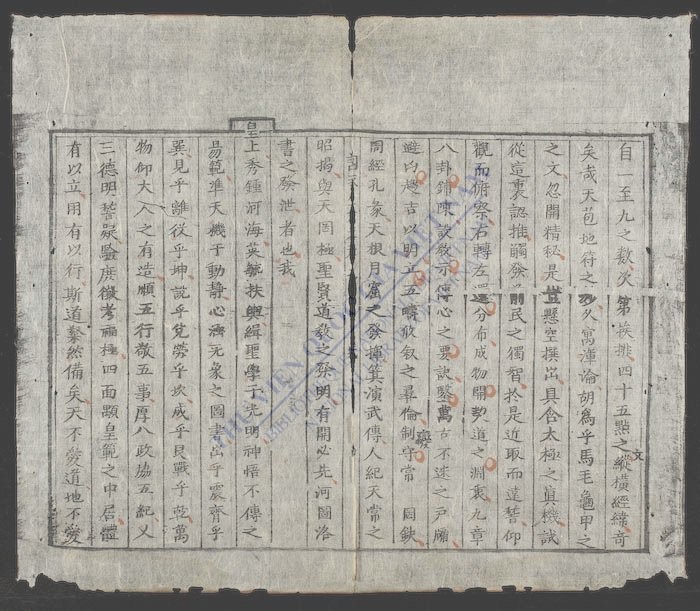 自一至九之數次第挨排四十五點之縱橫經緯奇文
矣哉天苞地符之久寓渾淪胡為乎馬毛龜甲之
之文忽開精秘是豈懸空撰出具含太極之真機誠
從這裏認推觸發前民之獨智於是近取而遠譬仰
觀而俯察右轉左還分布成物開契道之淵衷九章
八卦鋪陳設教示傳心之要訣鑿萬古不迷之戶牖
避凶趨吉以明立五疇攸敘之彝倫制守常罔缺
周經孔彖天根月窟之發揮箕演武傳人紀天常之
昭揭與天罔極聖賢道教之發明有開必先河圖洛
書之發泄者也我
皇上秀鍾河海英毓扶輿緝聖學于光明神悟不傳之
易範準天機于動靜心濟无象之圖書出乎震齊乎
巽見乎離役乎坤說乎兌勞乎坎成乎艮戰乎乾萬
物仰大人之有造順五行敬五事厚八政協五紀乂
三德明稽疑驗庶徵考兩極四面顯皇範之中居體
有以立用有以行斯道粲然備矣天不愛道地不愛